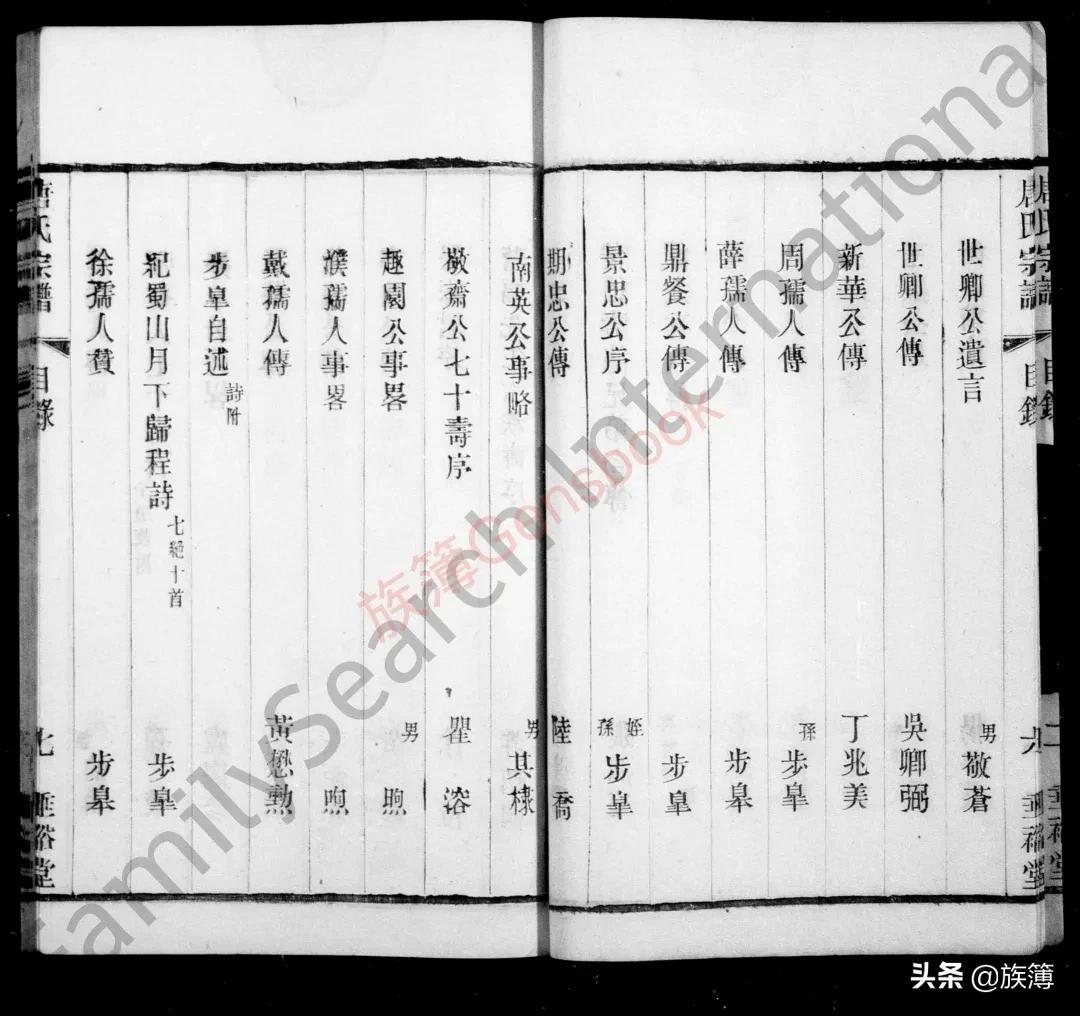 唐氏宗譜 目錄
世卿公遺言 男 敬蒼
世卿公傳 吳卿弼
新華公傳 丁兆美
周孺人傳 孫 步皐
薛孺人傳 步皐
鼎餐公傳 步皐
景忠公序 姪孫 步皐
期忠公傳 陸喬
南英公事略 男 其棣
敬齋公七十壽序 瞿溶
趣園公事畧 男 煦
濮孺人事畧 煦
戴孺人傳 黃懋勲
步皐自述 詩附
紀蜀山月下歸程詩 七絕十首 步皐
徐孺人贊 步皐
唐氏宗譜 目錄 七 垂裕堂
FamilySearch International
族簿Gensbook
头条 @族簿